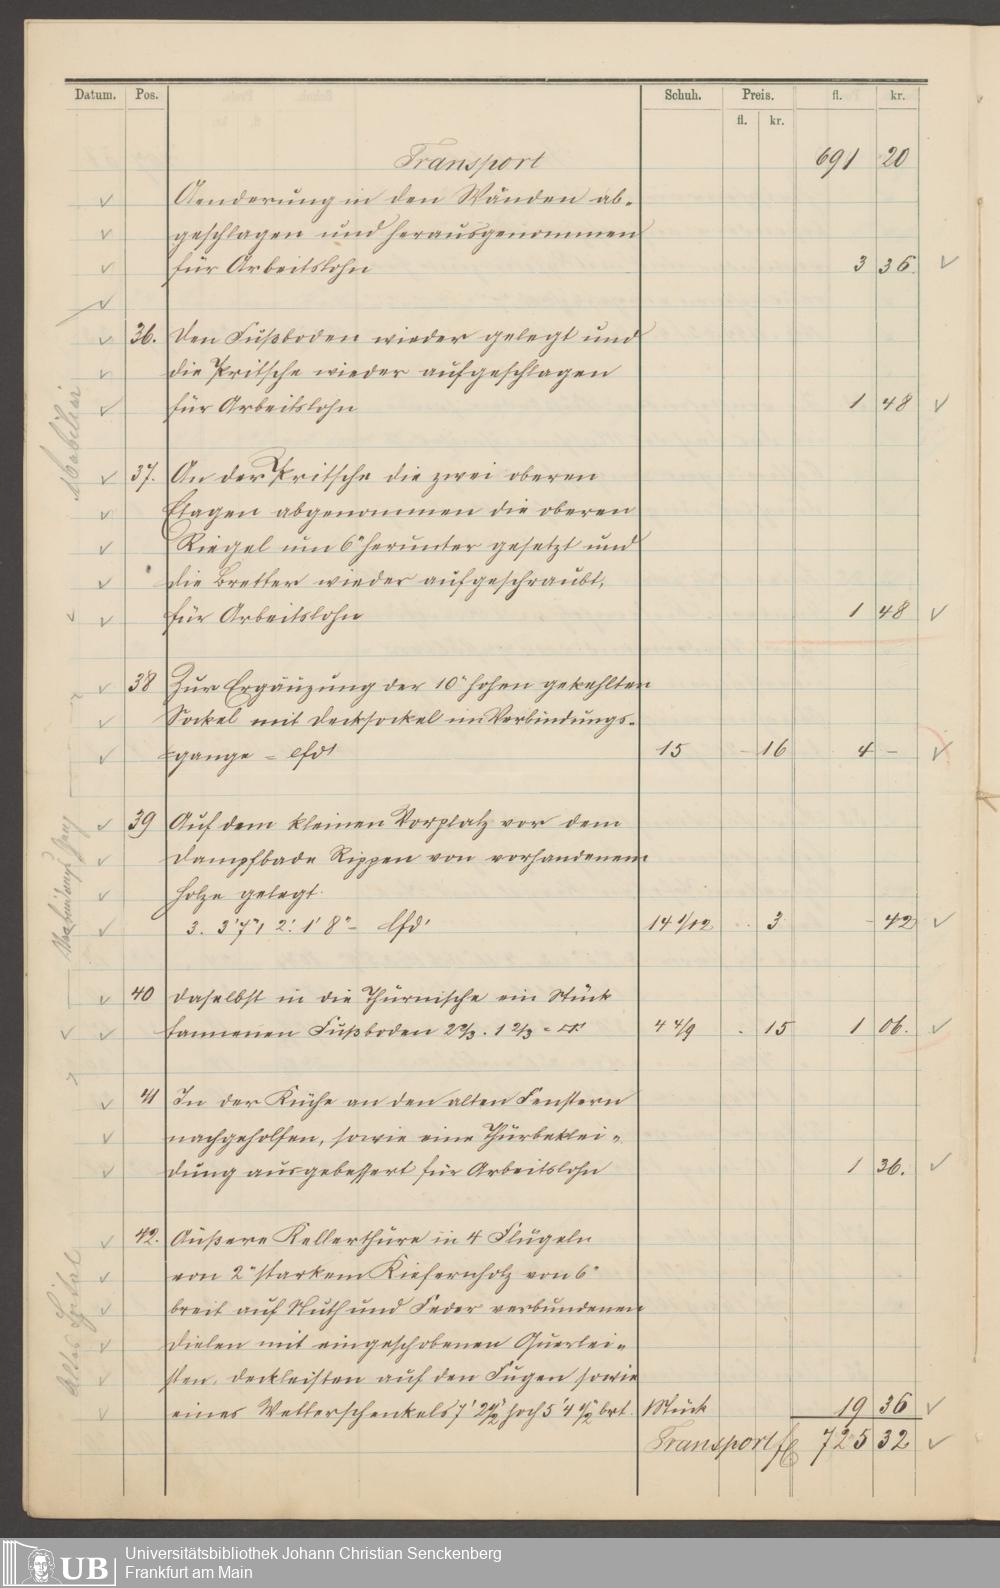 Datum. Pos. Schuh. Preis. fl. kr.
fl. kr.
Transport 691 20
Aenderung in den Wänden ab-
geschlagen und herausgenommen
für Arbeitslohn 3 36
36. Den Fußboden wieder gelegt und
die Pritsche wieder aufgeschlagen
für Arbeitslohn 1 48
37. An der Pritsche die zwei oberen
Etagen abgenommen die oberen
Riegel um 6" herunter gesetzt und
die Bretter wieder aufgeschraubt,
für Arbeitslohn 1 48
38 Zur Ergänzung der 10" hohen gekehlten
Sockel mit Decksockel im Verbindungs-
gange = lfd' 15 - 16 4 -
39 Auf dem kleinen Vorplatz vor dem
Dampfbade Rippen von vorhandenem
Holze gelegt.
3. 3'7", 2. 1'8" = lfd' 14 1/12 3 - 42
40 Daselbst in die Thürnische ein Stück
tannenen Fußboden 2 2/3 . 1 2/3 = □' 4 4/9 15 1 06.
41 In der Küche an den alten Fenstern
nachgeholfen, sowie eine Thürbeklei-
dung ausgebessert für Arbeitslohn 1 36.
42. Äußere Kellerthüre in 4 Flügeln
von 2" starkem Kiefernholz von 6"
breit auf Nuth und Feder verbundenen
Dielen mit eingeschobenen Querlei-
sten, Deckleisten auf den Fugen sowie
eines Wetterschenkels 7' 2 1/2" hoch 5' 4 1/2" brt. 1 Stück 19 36
Transport fl 725 32
Mobiliar
Altes Spital
UB
Universitätsbibliothek Johann Christian Senckenberg
Frankfurt am Main